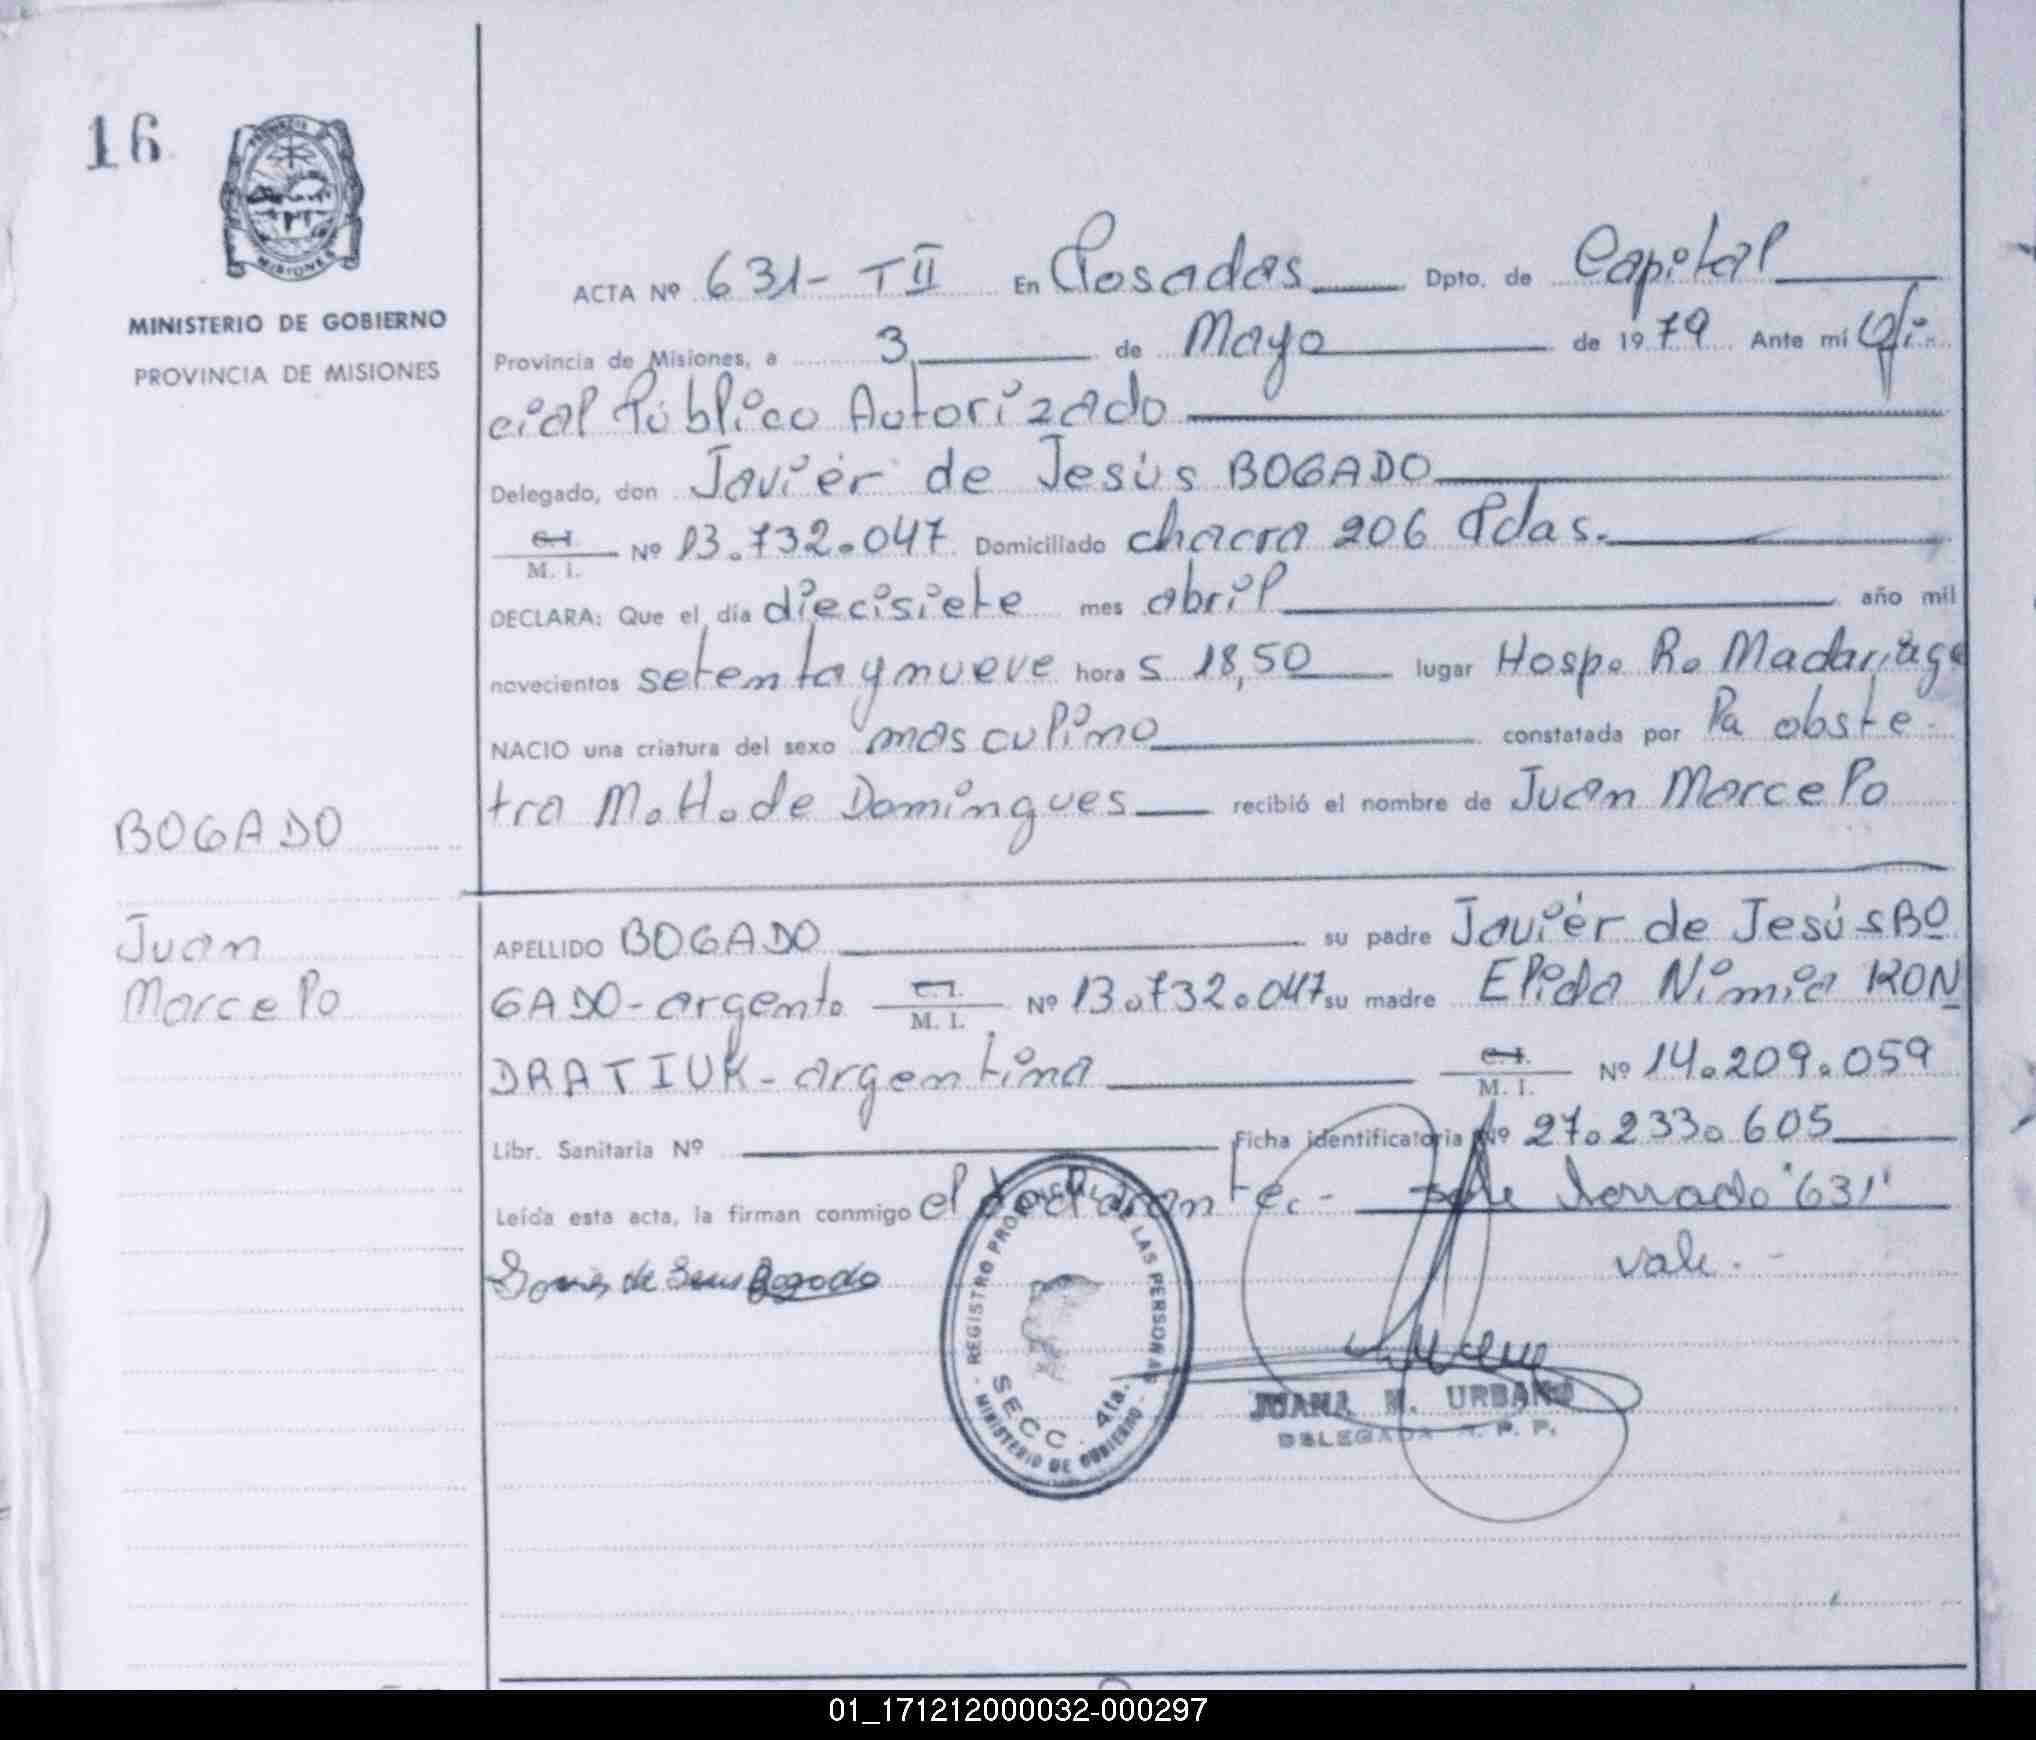 16
PROVINCIA
MISIONES
MINISTERIO DE GOBIERNO
PROVINCIA DE MISIONES
ACTA Nº 631- T II En Posadas Dpto. de Capital
Provincia de Misiones, a 3 de Mayo de 1979 Ante mí Ofi-
cial Público Autorizado
Delegado, don Javier de Jesús BOGADO
C.I. M. I. Nº 13.732.047 Domiciliado chacra 206 Pdas.
DECLARA: Que el día diecisiete mes abril año mil
novecientos setenta y nueve hora s 18,50 lugar Hosp. R. Madariaga
NACIO una criatura del sexo masculino constatada por la obste-
tra M. H. de Domingues recibió el nombre de Juan Marcelo
BOGADO
Juan
Marcelo
APELLIDO BOGADO su padre Javier de Jesús BO
GADO-argento C.I. M. I. Nº 13.732.047 su madre Elida Nimia KON
DRATIUK-argentina C.I. M. I. Nº 14.209.059
Libr. Sanitaria Nº Ficha identificatoria Nº 27.233.605
Leída esta acta, la firman conmigo el declarante.- borrado "631"
vale.-
de Jesus Bogado
REGISTRO PROVINCIAL DE LAS PERSONAS
SECC. 4ta.
MINISTERIO DE GOBIERNO
JUANA N. URBANO
DELEGADA R. P. P.
01_171212000032-000297